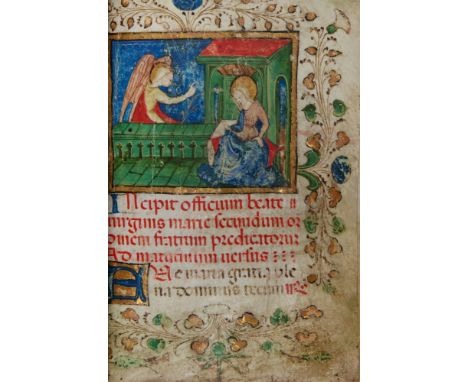 Incipit officium beate
virginis marie secundum or
dinem fratrum predicatorum
Ad matutinum versus
Ave maria gratia ple
na dominus tecum R